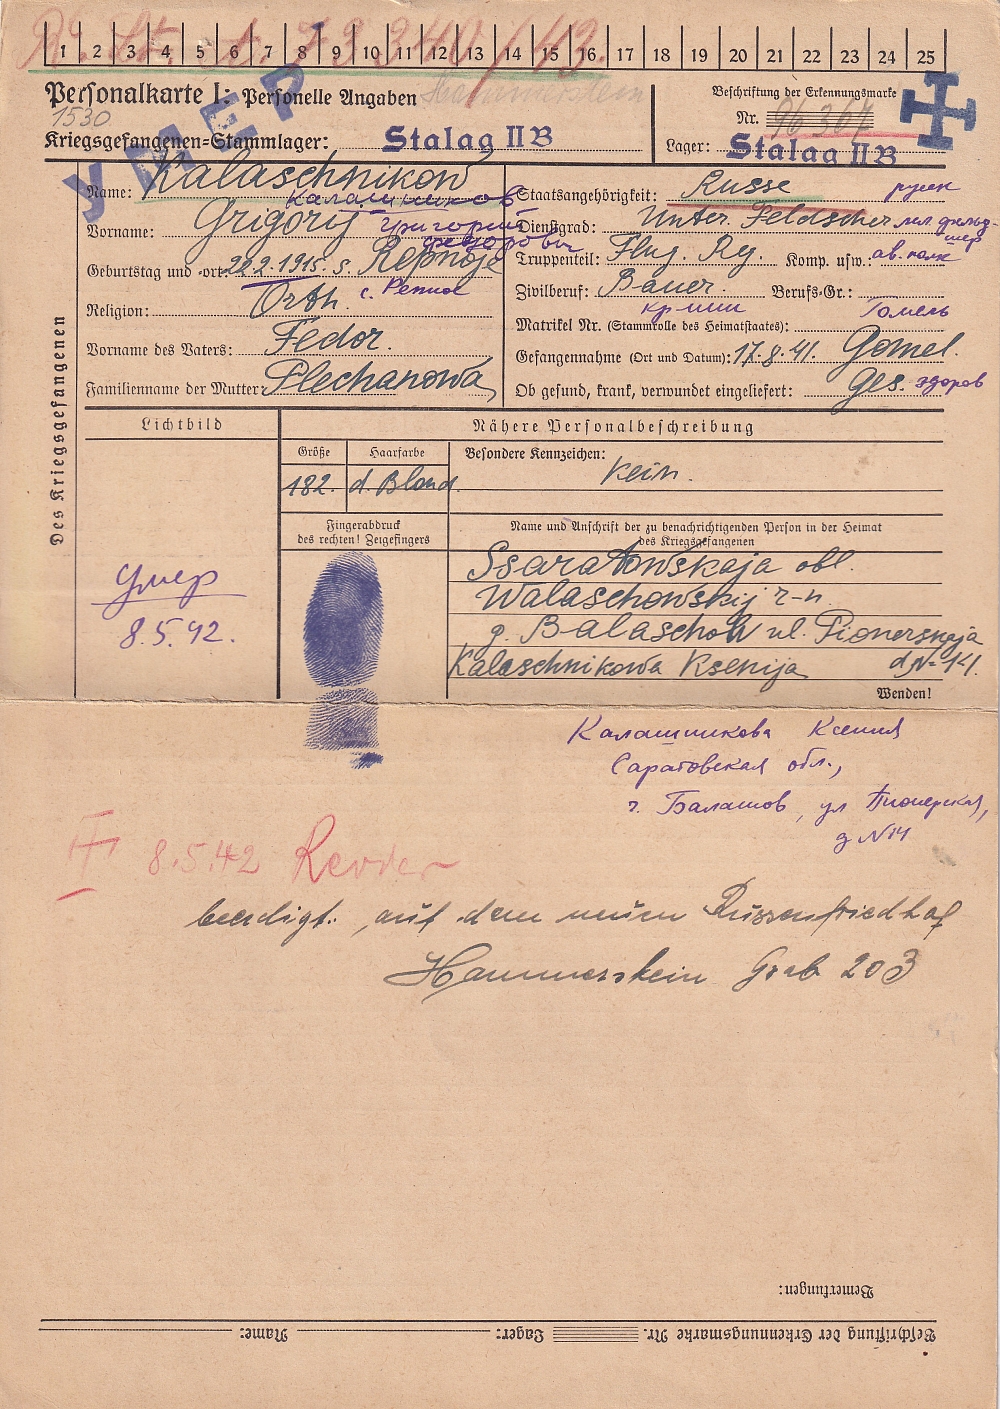 1 2 3 4 5 6 7 8 9 10 11 12 13 14 15 16 17 18 19 20 21 22 23 24 25
Personalkarte I: Personelle Angaben Hammerstein
1530
Kriegsgefangenen-Stammlager: Stalag II B
Beschriftung der Erkennungsmarke
Nr. 96 367
Lager: Stalag II B
УМЕР
Des Kriegsgefangenen
Name: Kalaschnikow
Калашников
Vorname: Grigorij Григорий
Федорович
Geburtstag und -ort: 22.2.1915. s. Repnoje
Religion: Orth. с. Репное
Vorname des Vaters: Fedor.
Familienname der Mutter: Plechanowa
Staatsangehörigkeit: Russe русск
Dienstgrad: Unter. Feldscher мл. фельд-
шер
Truppenteil: Flug. Rg. Komp. usw.: ав. полк
Zivilberuf: Bauer. Berufs-Gr.:
Гомель
Matrikel Nr. (Stammrolle des Heimatstaates):
Gefangennahme (Ort und Datum): 17.8.41. Gomel.
Ob gesund, krank, verwundet eingeliefert: Ges. здоров
Lichtbild
Nähere Personalbeschreibung
Größe Haarfarbe Besondere Kennzeichen:
182. d. Blond. Kein.
Fingerabdruck
des rechten! Zeigefingers
Name und Anschrift der zu benachrichtigenden Person in der Heimat
des Kriegsgefangenen
умер
8.5.42.
Ssaratowskaja obl.
Walaschowskij r-n.
g. Balaschow ul. Pionerskaja
Kalaschnikowa Ksenija d. N- 14.
Wenden!
Калашникова Ксения
Саратовская обл.,
г. Балашов, ул Пионерская,
д N 14
8.5.42
beerdigt: auf dem neuen Russenfriedhof
Hammerstein Grab 203
Bemerkungen:
Beschriftung der Erkennungsmarke Nr. Lager: Name: